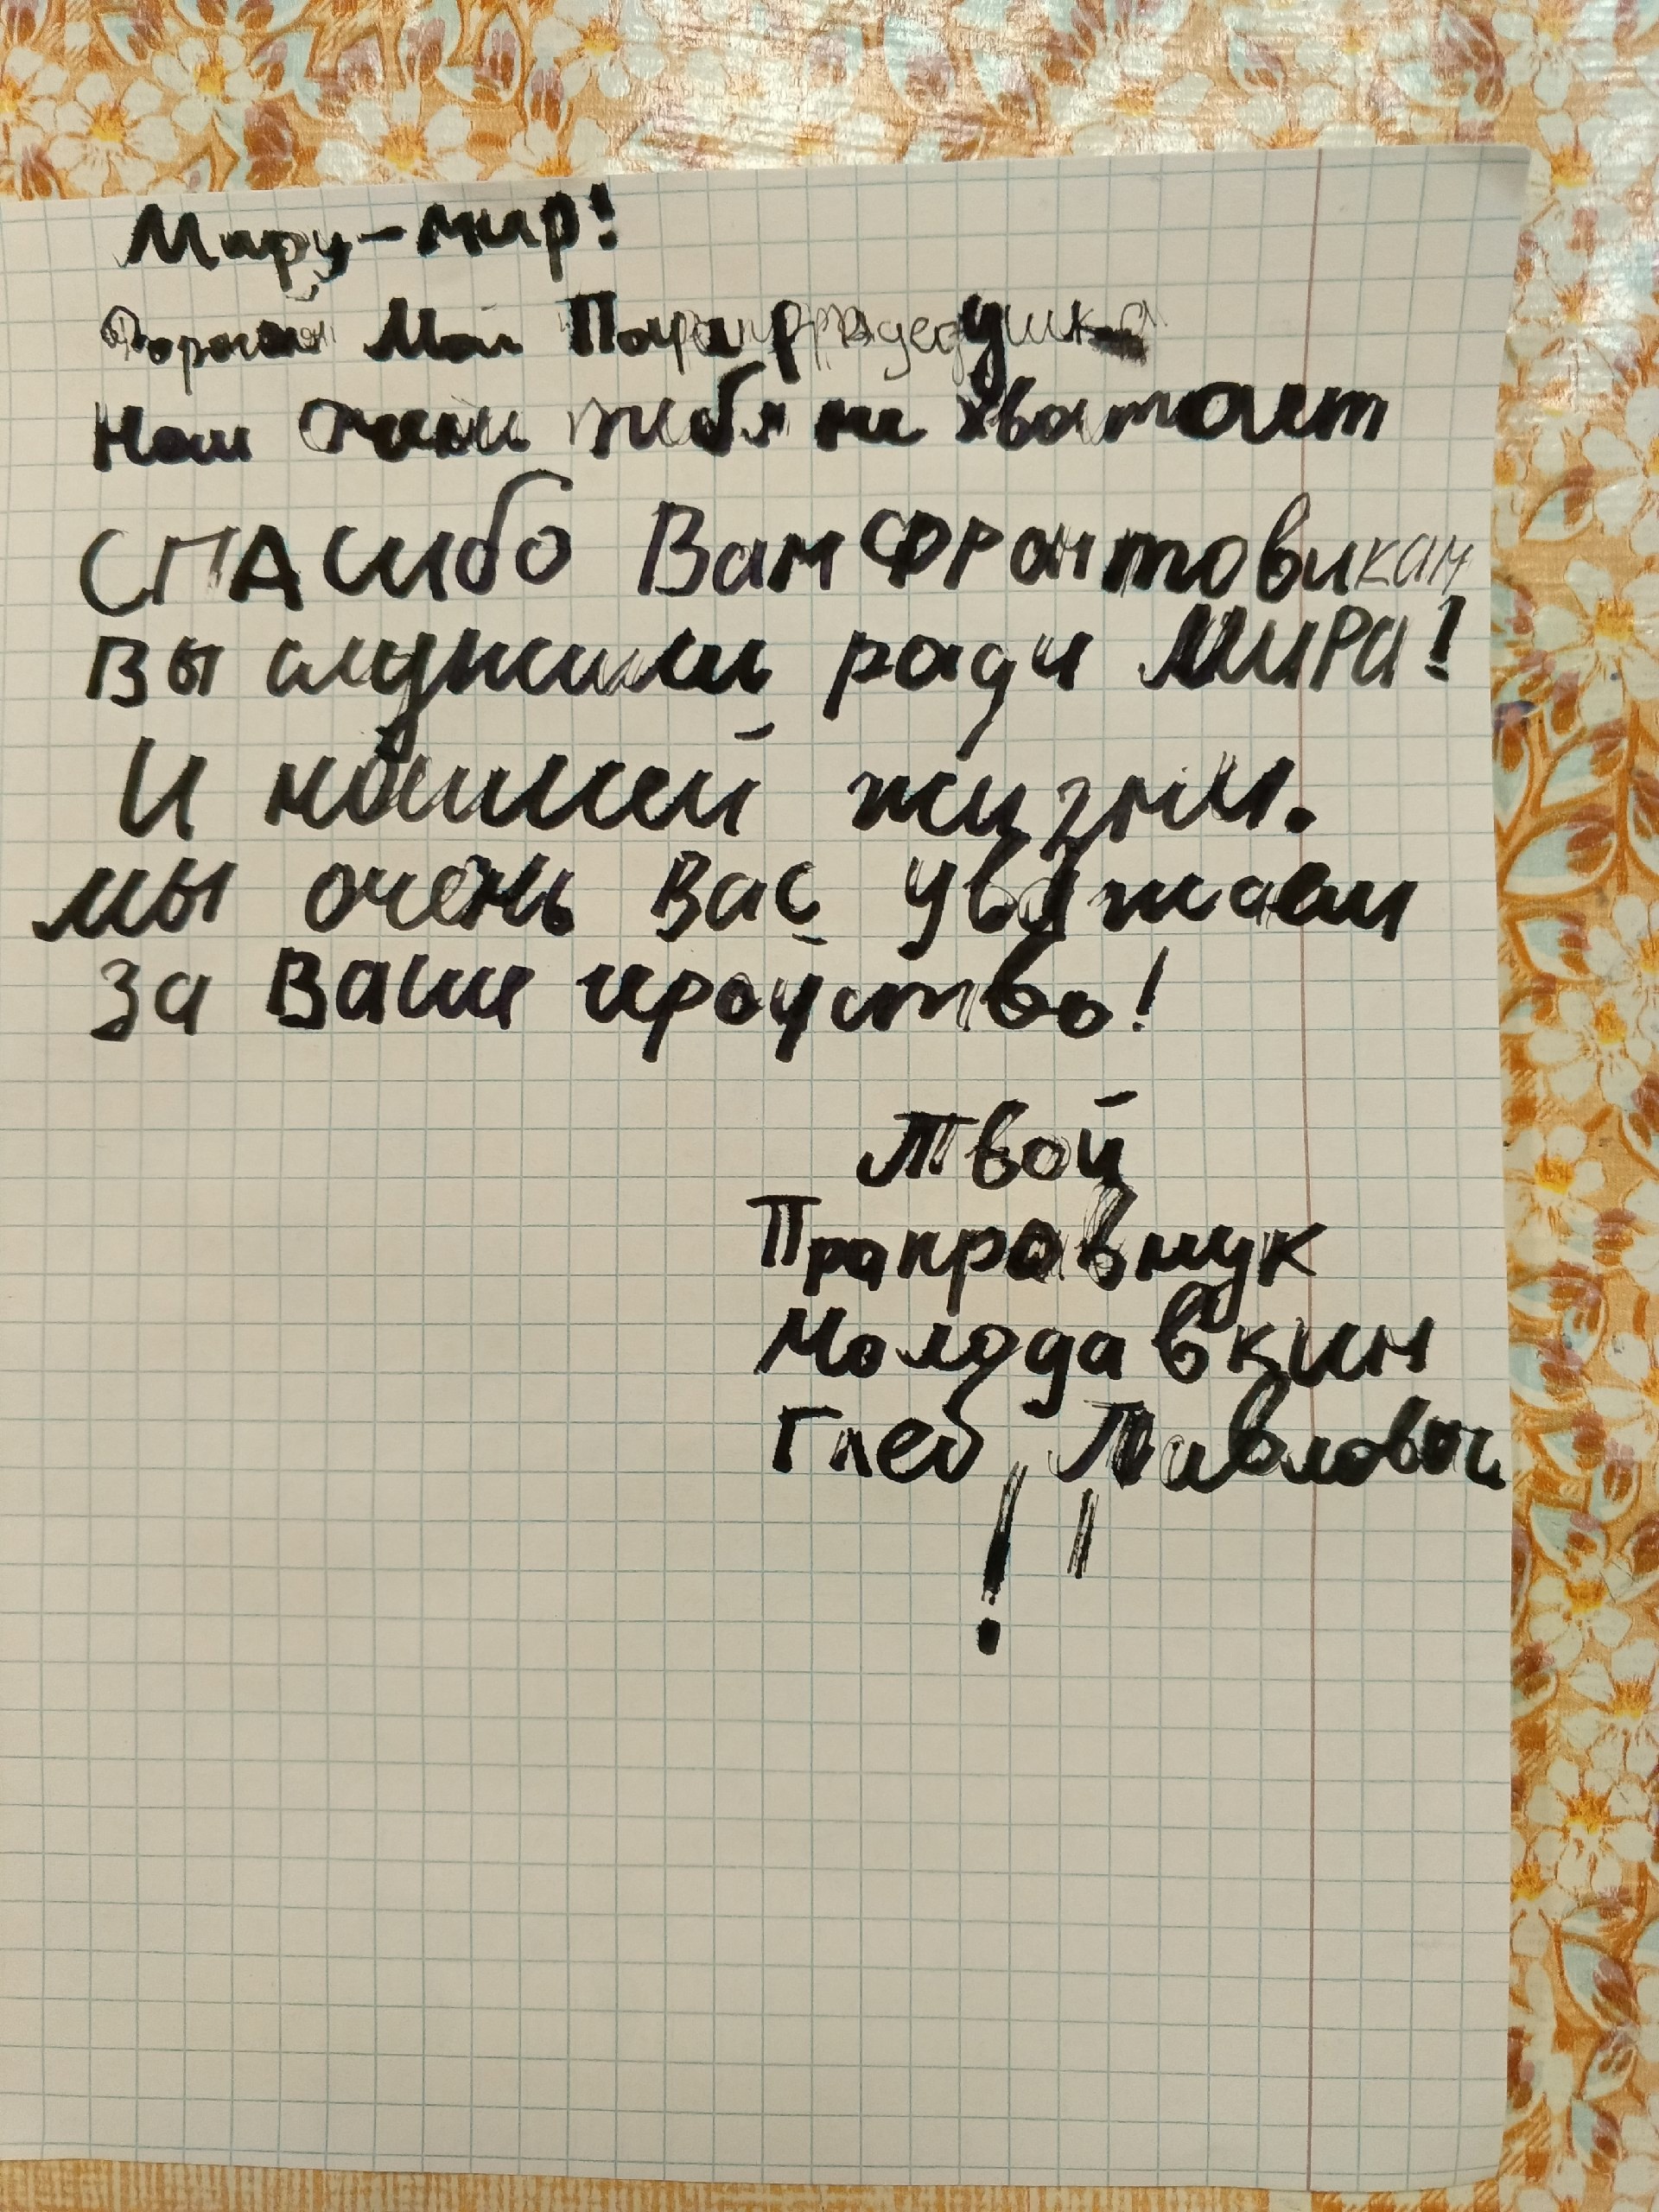 Миру-мир!
Дорогой Мой Прапрадедушка
Нам очень тебя ни хватает
СПАсибо Вам Фронтовикам
Вы служили ради МИРА!
И нашей жизни.
мы очень Вас уважаем
за Ваше
Твой
Праправнук
Молодавкин
Глеб Павлович
!